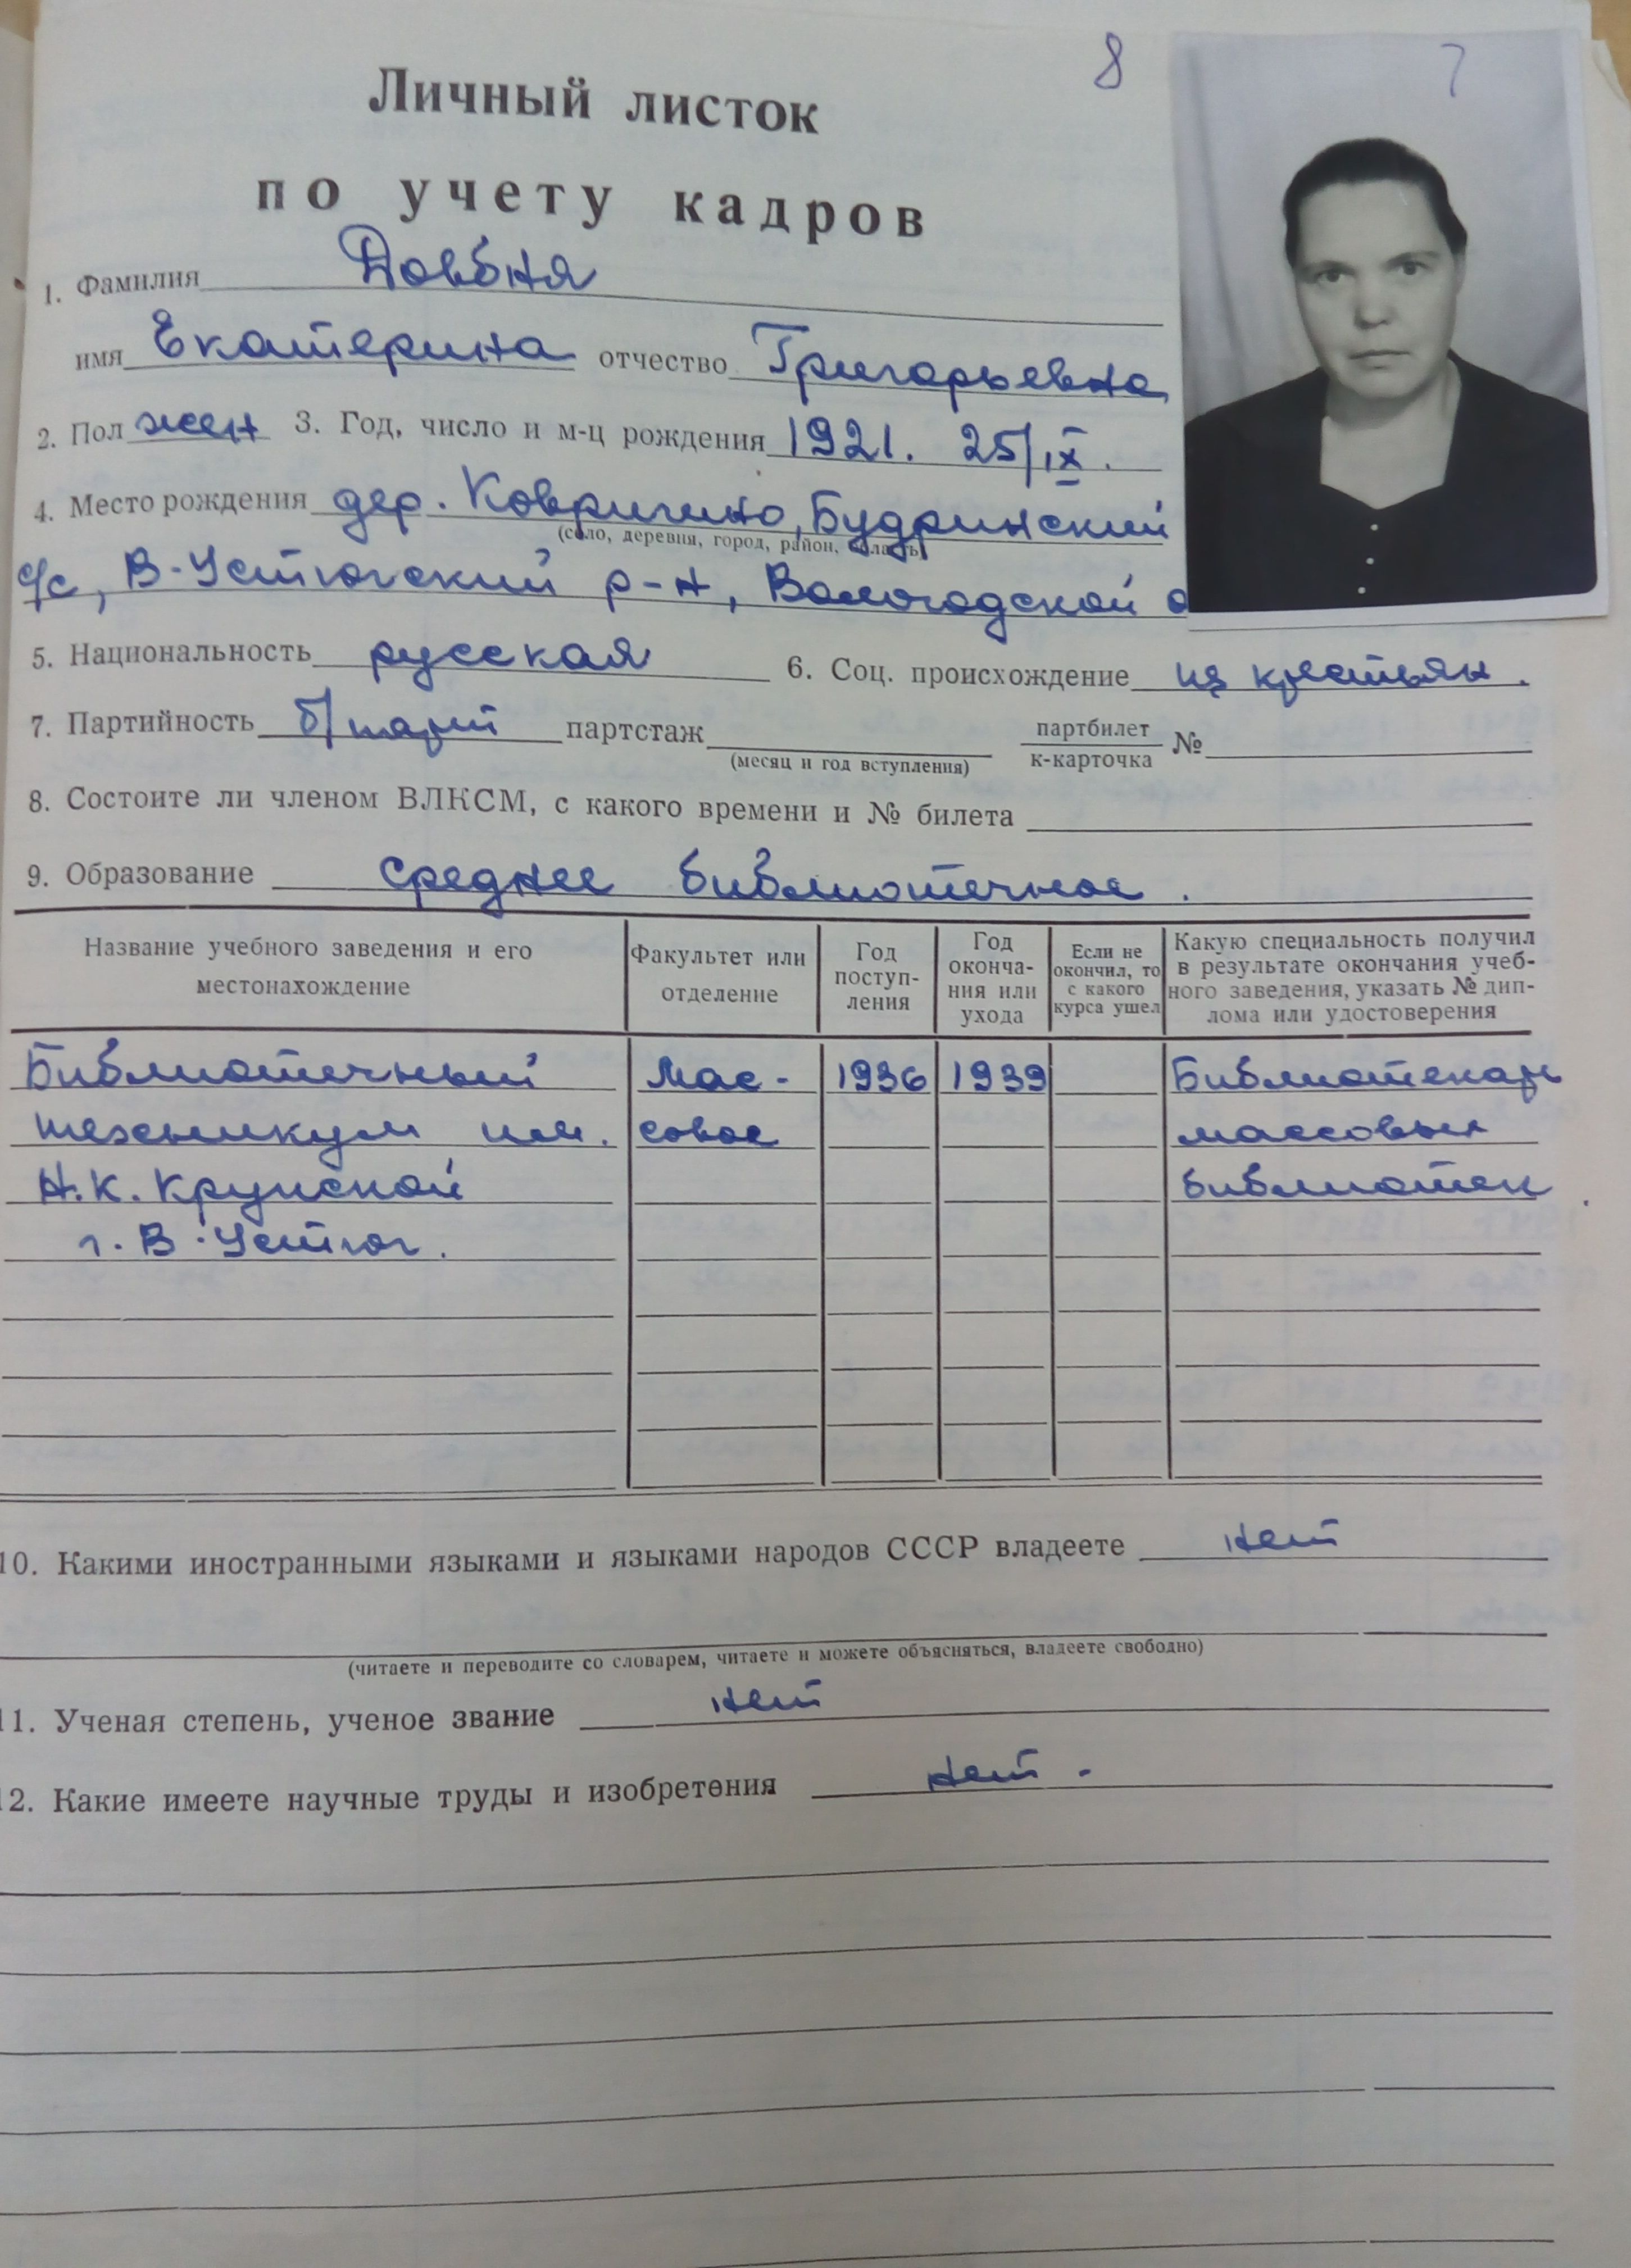 8
7
Личный листок
по учету кадров
1. Фамилия Довбня
имя Екатерина отчество Григорьевна
2. Пол жен 3. Год, число и м-ц рождения 1921. 25/IX.
4. Место рождения дер. Ковригино, Будринский
(село, деревня, город, район, область)
с/с, В-Устюгский р-н, Вологодской о
5. Национальность русская 6. Соц. происхождение из крестьян.
7. Партийность б/парт партстаж партбилет №
(месяц и год вступления) к-карточка
8. Состоите ли членом ВЛКСМ, с какого времени и № билета
9. Образование среднее библиотечное.
Название учебного заведения и его местонахождение
Факультет или отделение
Год поступ-
ления
Год
оконча-
ния или
ухода
Если не
окончил, то
с какого
курса ушел
Какую специальность получил
в результате окончания учеб-
ного заведения, указать № дип-
лома или удостоверения
Библиотечный Мас- 1936 1939 Библиотекарь
техникум им. совое массовых
Н.К. Крупской библиотек.
г. В-Устюг.
10. Какими иностранными языками и языками народов СССР владеете нет
(читаете и переводите со словарем, читаете и можете объясняться, владеете свободно)
11. Ученая степень, ученое звание нет
12. Какие имеете научные труды и изобретения нет -